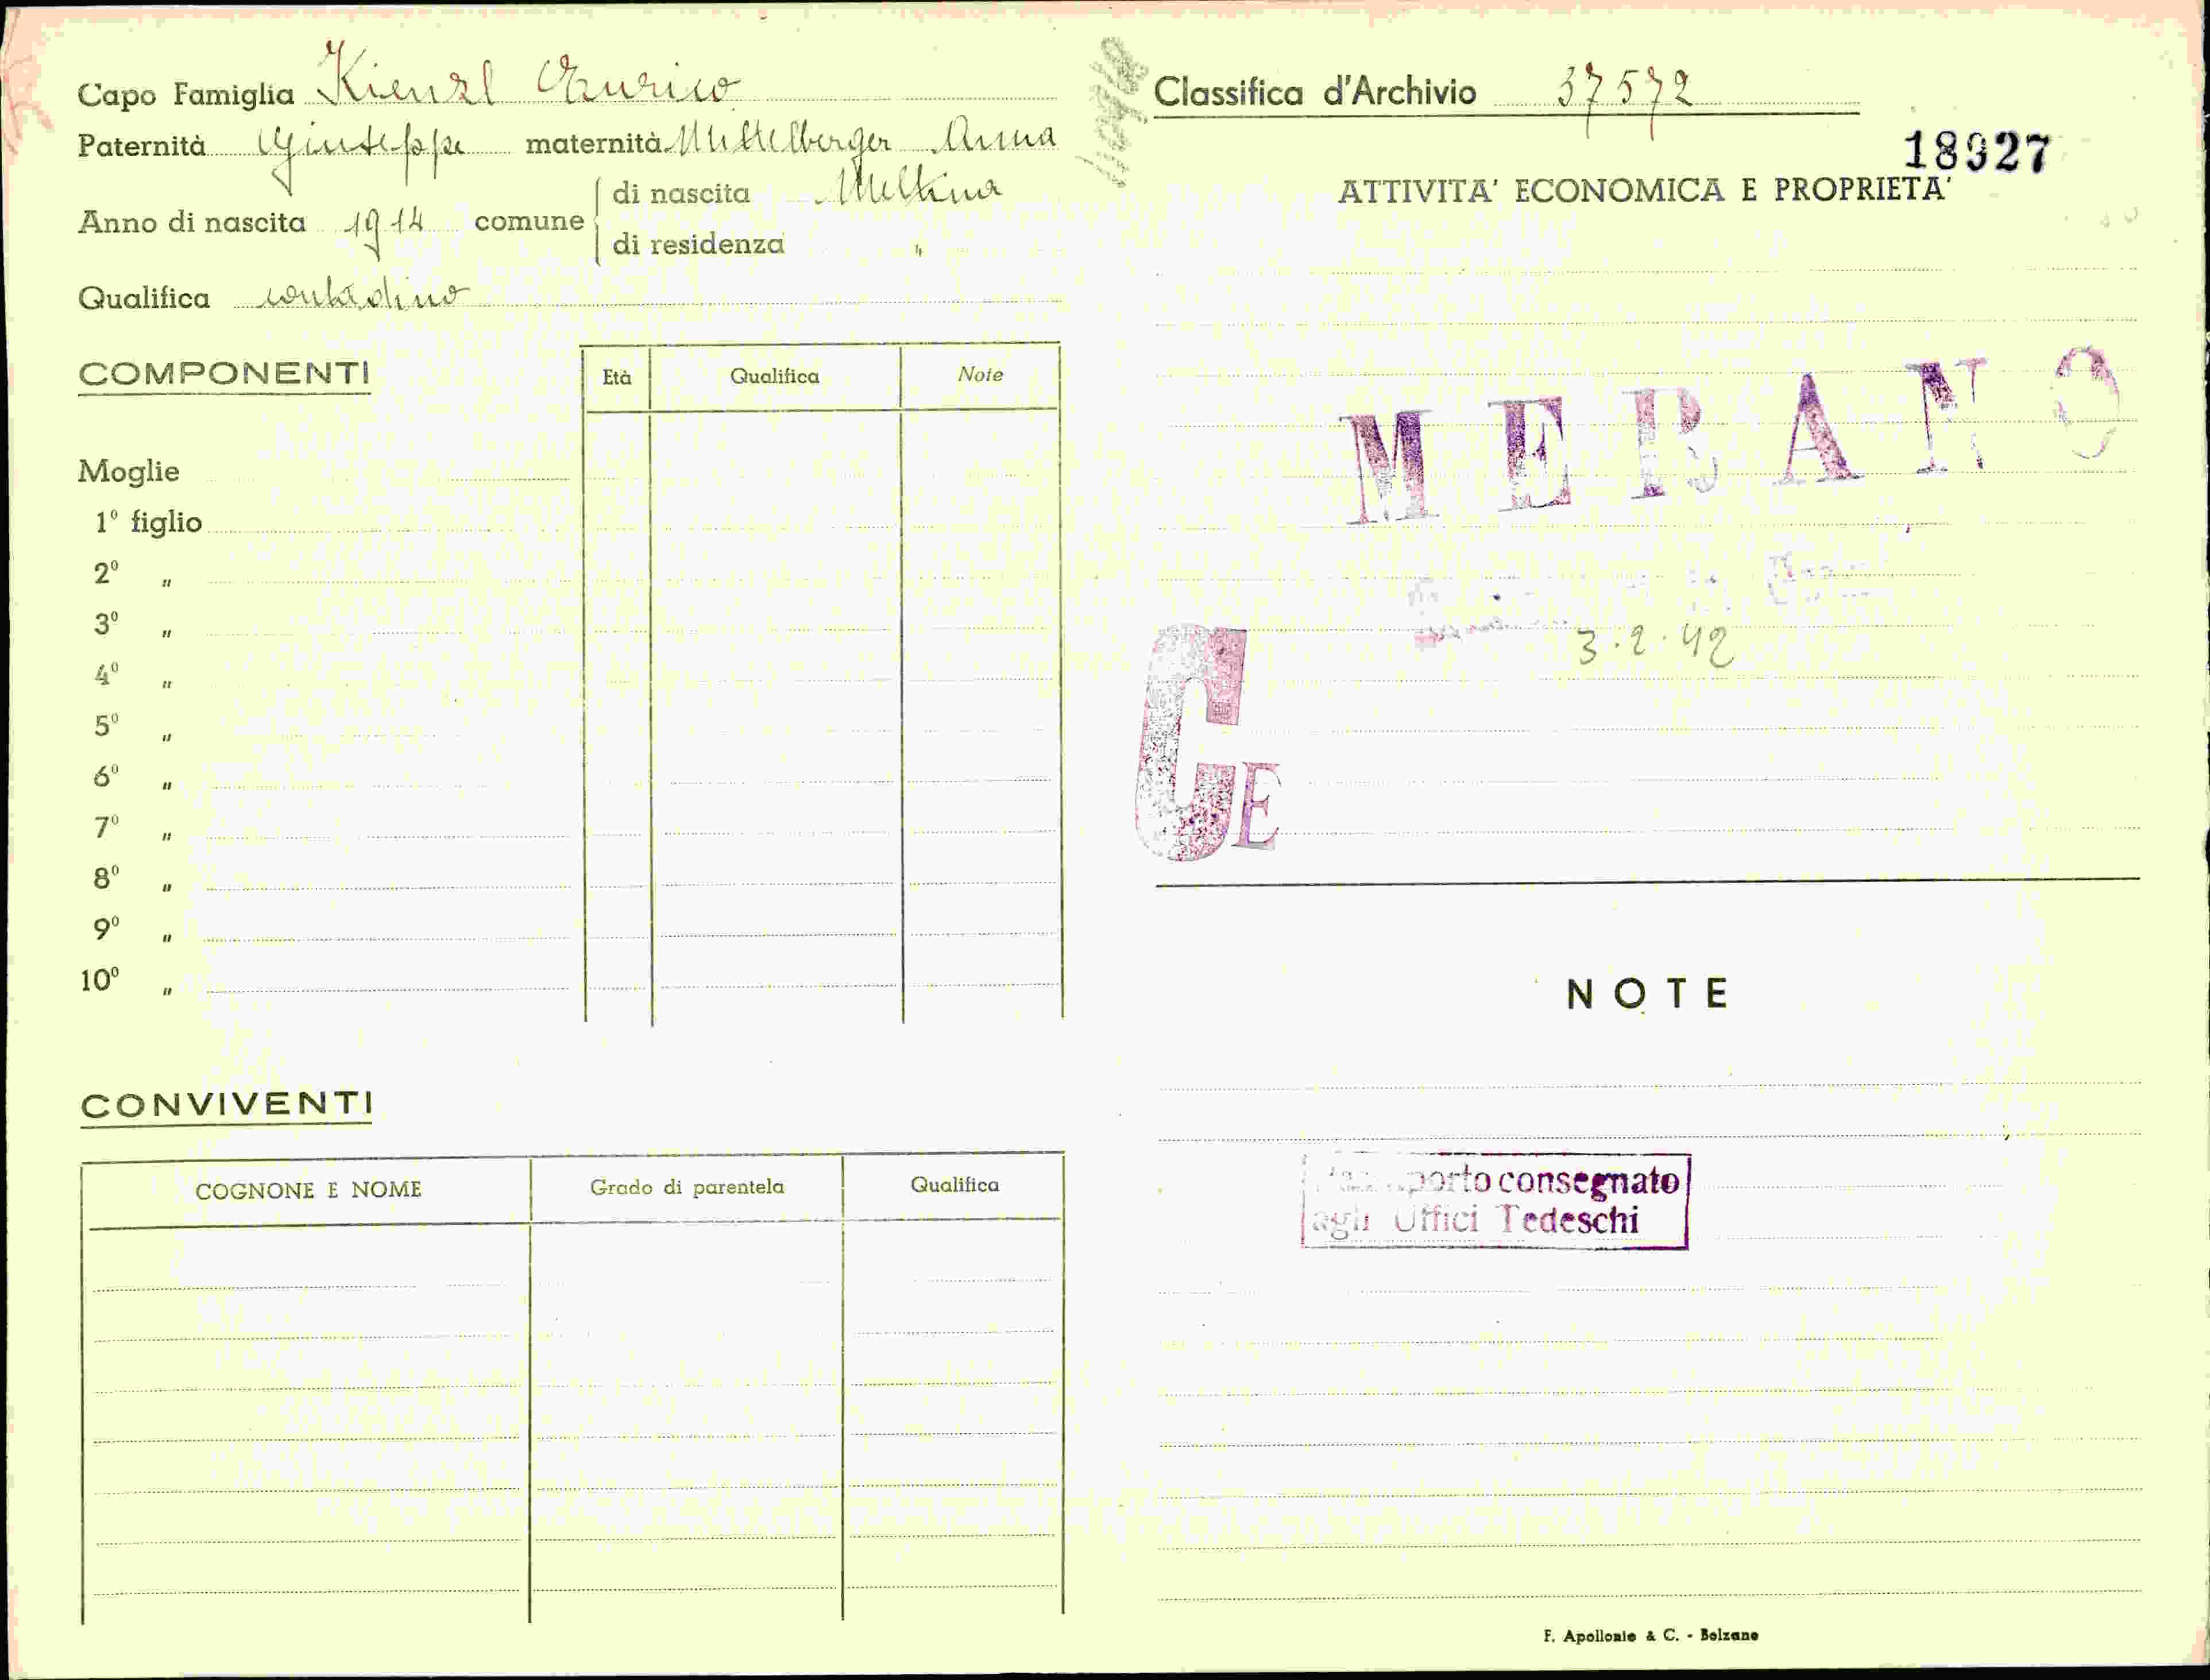 Capo Famiglia Kienzl Enrico
Paternità Giuseppe maternità Mittelberger Anna
Anno di nascita 1914 comune di nascita Meltina
di residenza "
Qualifica contadino
COMPONENTI
Età Qualifica Note
Moglie
1° figlio
2° "
3° "
4° "
5° "
6° "
7° "
8° "
9° "
10° "
CONVIVENTI
COGNONE E NOME Grado di parentela Qualifica
Classifica d'Archivio 37572
18927
ATTIVITA' ECONOMICA E PROPRIETA'
MERANO
3.2.42
C E
NOTE
consegnato
agli Uffici Tedeschi
F. Apollonio & C. - Bolzano